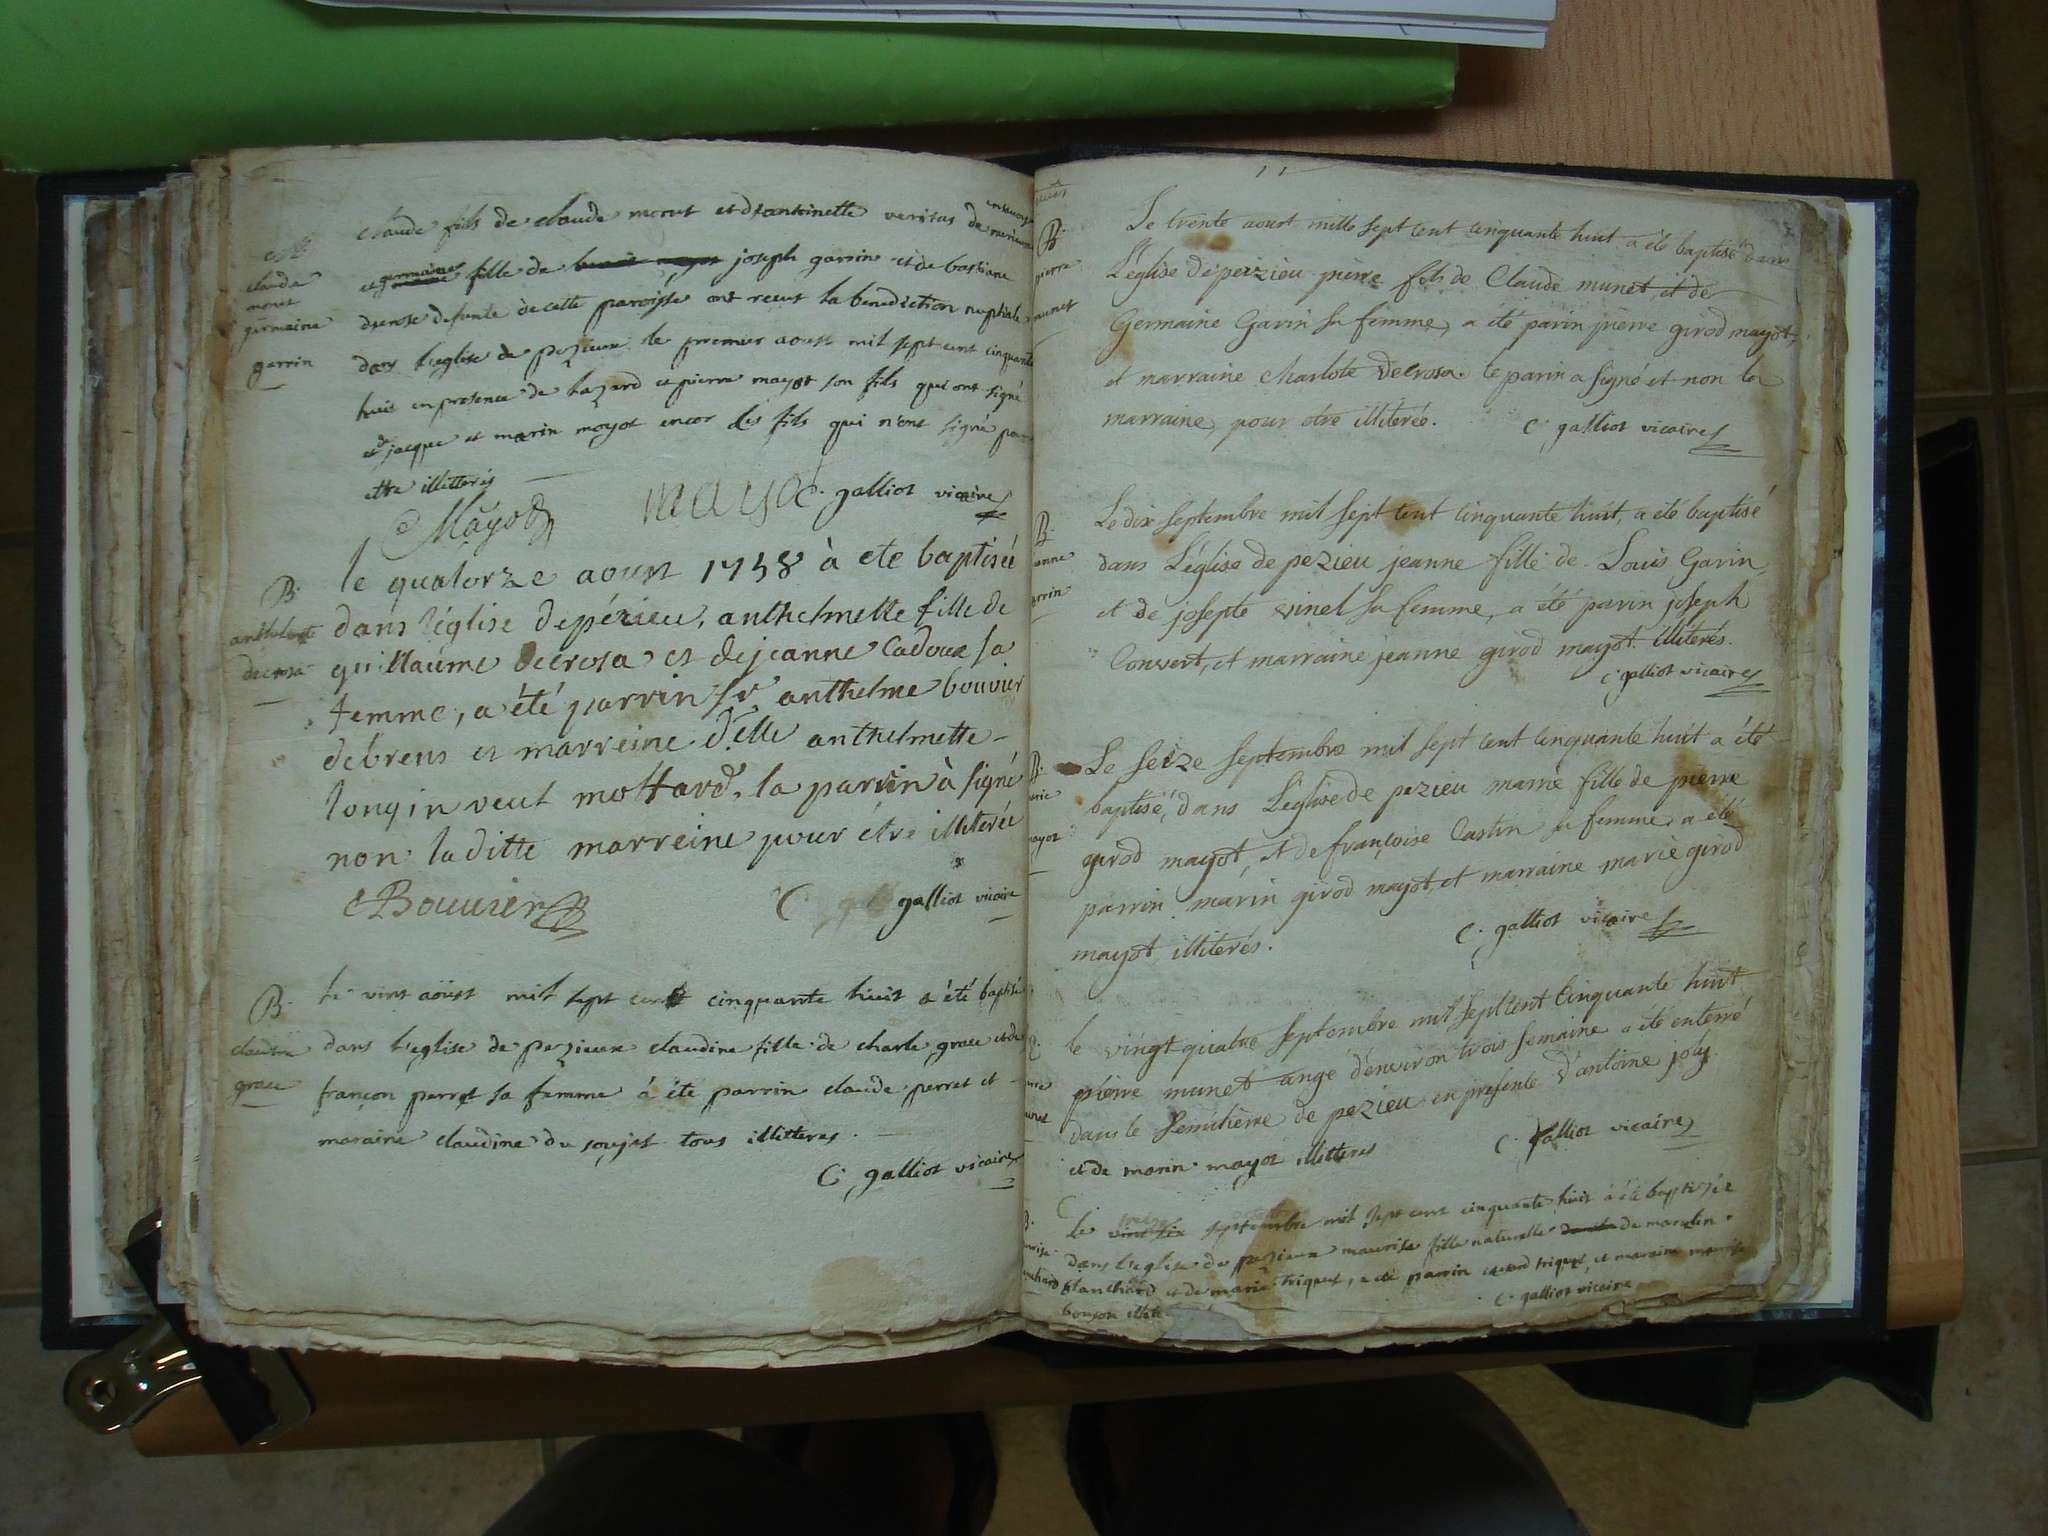 claude fils de claude morut et d'antoinette veritas de
et germaine fille de joseph garrin et de bastiane
decrose defunte de cette paroisse ont recut la benediction nuptiale
dans l'eglise de pezieux le premier aoust mil sept cent cinquante
huit en presence de lazard et pierre mayot son fils qui ont signé
et de jacque et marin mayot encor ses fils qui n'ont signé pour
etre illitteres
Mayod mayot C. galliot vicaire
claude
morut
germaine
garrin
B.
anthelmette
decrosa
le quatorze aoust 1758 à eté baptisée
dans l'église de pézieu, anthelmette fille de
guillaume decrosa et de jeanne Cadoux sa
femme, a été parrin sr. anthelme bouvier
de brens et marreine delle anthelmette
longin veut mottard, la parrin à signé
non laditte marreine pour étre illiterée
Bouvier C galliot vicaire
B.
claudine
grace
Le vint aöust mil sept cent cinquante huit a été baptisée
dans l'eglise de pezieux claudine fille de charle grace et de
françon perret sa femme á été parrin claude perret et
maraine claudine du soujet tous illitteres.
C. galliot vicaire
11
B.
pierre
munet
Le trente aoust mille sept cent cinquante huit a été baptisé dans
L'église de peizieu pierre fils de Claude munet, et de
Germaine Garin sa femme, a été parin pierre girod mayot,
et marraine charlote decrosa. le parin a signé et non la
marraine, pour etre illiterée. C. galliot vicaire
B.
Le dix septembre mil sept cent cinquante huit, a été baptisé
dans L'église de pezieu jeanne fille de Louis Garin,
et de josepte vinel sa femme, a été parin joseph
Convert, et marraine jeanne girod mayot. illiterés.
C. galliot vicaire
B.
Le seize septembre mil sept cent cinquante huit a été
baptisé, dans L'église de pezieu marie fille de pierre
girod mayot, et de françoise Castin sa femme, a été
parrin marin girod mayot, et marraine marie girod
mayot, illiterés. C. galliot vicaire
le vingt quatre septembre mil sept cent Cinquante huit
pierre munet ange d'environ trois semaine a été enterré
dans le semithierre de pezieu en presente d'antoine joly
et de marin mayot illitteres C. galliot vicaire
B.
le septembre mil sept cent cinquante huit à été baptizée
dans l'eglise de pezieux maurise fille naturelle de
blanchard et de marie triquet, a eté parrin triquet, et maraine
C. galliot vicaire